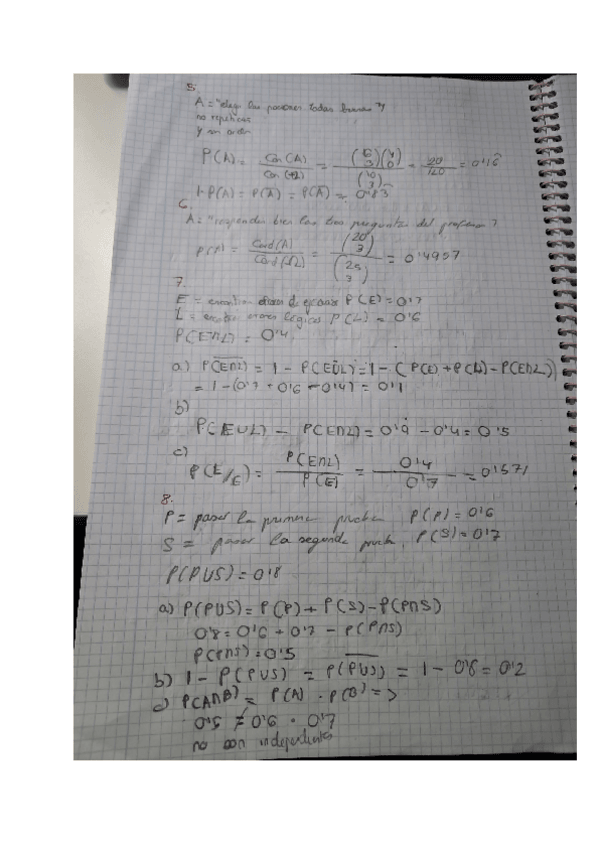 5.
A = "elegir las posiciones todas buenas"
no repetición
y sin orden
P(A) = Car(A) / Car(Ω) = (6 3)(4 0) / (10 3) = 20/120 = 0'16
1-P(A) = P(Ā) = P(Ā) = 0'83
6.
A = "responder bien las tres preguntas del profesor"
P(A) = Card(A) / Card(Ω) = (20 3) / (25 3) = 0'4957
7.
E = encontrar errores de P(E) = 0'7
L = errores lógicos P(L) = 0'6
P(E∩L) = 0'4
a) = 1 - P(E∪L) = 1 - (P(E) + P(L) - P(E∩L))
= 1 - (0'7 + 0'6 - 0'4) = 0'1
b)
P(E∪L) - P(E∩L) = 0'9 - 0'4 = 0'5
c)
= P(E∩L) / P(E) = 0'4 / 0'7 = 0'571
8.
P = pasar la primera prueba P(P) = 0'6
S = pasar la segunda prueba, P(S) = 0'7
P(P∪S) = 0'8
a) P(P∪S) = P(P) + P(S) - P(P∩S)
0'8 = 0'6 + 0'7 - P(P∩S)
P(P∩S) = 0'5
b) 1 - P(P∪S) = P(P∪S)‾ = 1 - 0'8 = 0'2
c) P(A∩B) = P(A) · P(B) =>
0'5 ≠ 0'6 · 0'7
no son independientes